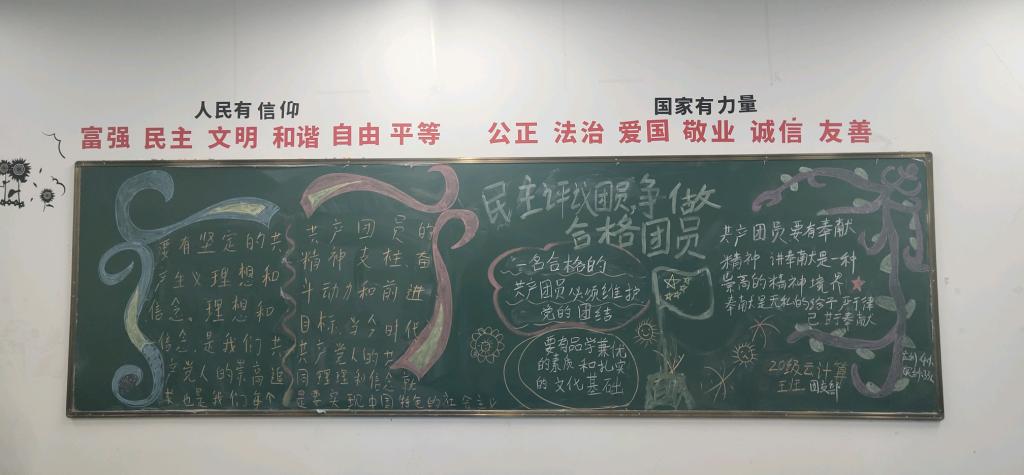 人民有信仰
国家有力量
富强 民主 文明 和谐 自由 平等
公正 法治 爱国 敬业 诚信 友善
要有坚定的共
产主义理想和
信念、理想和
信念,是我们共
产党人的崇高追
求也是我们每个
共产团员的
精神支柱、奋
斗动力和前进
目标,当今时代
共产党人的共
同理想和信念就
是要实现中国特色的社会主义
民主评议团员,争做
合格团员
一名合格的
共产团员必须维护
党的团结
要有品学兼优
的素质和扎实
的文化基础
共产团员要有奉献
精神 讲奉献是一种
崇高的精神境界
奉献是无私的给予 严于律
己 甘于奉献
20级云计算
王庄 团支部